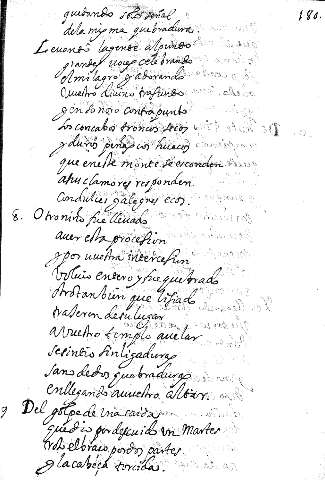 180.
quedando solo señal
de la misma quebradura.
Leuantó la gente al punto
grandes uozes celebrando
el milagro, y adorando
Vuestro diuino trasunto
y en sonoro contrapunto
los concabos troncos secos
y duros peñascos huecos
que en este monte se esconden
a sus clamores responden
con dulces y alegres ecos.
8. Otro niño fue lleuado
a uer esta procesion
y por vuestra intercesion
boluio entero y fue quebrado
otro tanbien que lisiado
traxeron de su lugar
a vuestro templo a uelar
se sintio sin ligaduras
sano de dos quebraduras
en llegando a vuestro altar.
9 Del golpe de vna caida
que dio por descuido vn Martes
el braco por dos partes
y la cabeça torcida.